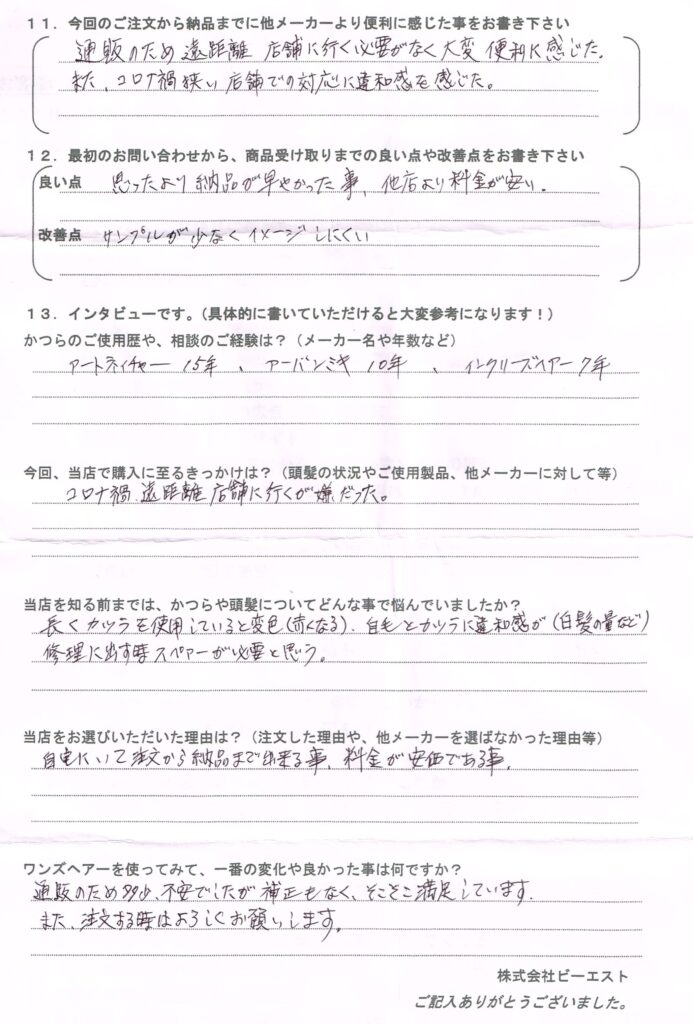 11．今回のご注文から納品までに他メーカーより便利に感じた事をお書き下さい
通販のため遠距離 店舗に行く必要がなく大変便利に感じた。
また、コロナ禍狭い店舗での対応に違和感を感じた。
12．最初のお問い合わせから、商品受け取りまでの良い点や改善点をお書き下さい
良い点 思ったより納品が早やかった事、他店より料金が安い。
改善点 サンプルが少なくイメージしにくい
13．インタビューです。（具体的に書いていただけると大変参考になります！）
かつらのご使用歴や、相談のご経験は？（メーカー名や年数など）
アートネイチャー 15年 、 アーバンミキ 10年 、 インクリーズヘアー 7年
今回、当店で購入に至るきっかけは？（頭髪の状況やご使用製品、他メーカーに対して等）
コロナ禍、遠距離 店舗に行くが嫌だった。
当店を知る前までは、かつらや頭髪についてどんな事で悩んでいましたか？
長くカツラを使用していると変色（赤くなる）、自毛とカツラに違和感が（白髪の量など）
修理に出す時スペアーが必要と思う。
当店をお選びいただいた理由は？（注文した理由や、他メーカーを選ばなかった理由等）
自宅にいて注文から納品まで出来る事、料金が安価である事。
ワンズヘアーを使ってみて、一番の変化や良かった事は何ですか？
通販のため多少、不安でしたが補正もなく、そこそこ満足しています。
また、注文する時はよろしくお願いします。
株式会社ビーエスト
ご記入ありがとうございました。